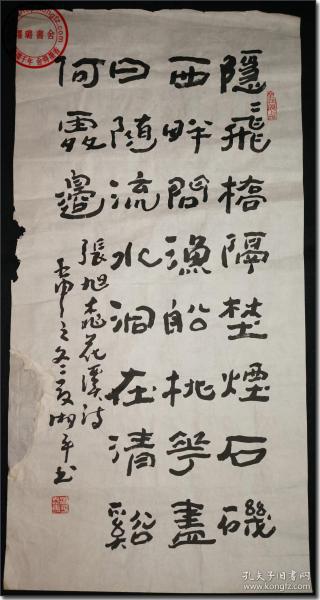 隱〻飛橋隔埜煙石磯
西畔問漁船桃華盡
日隨流水洞在清谿
何處邊
張旭桃花溪詩
孔夫子旧书网